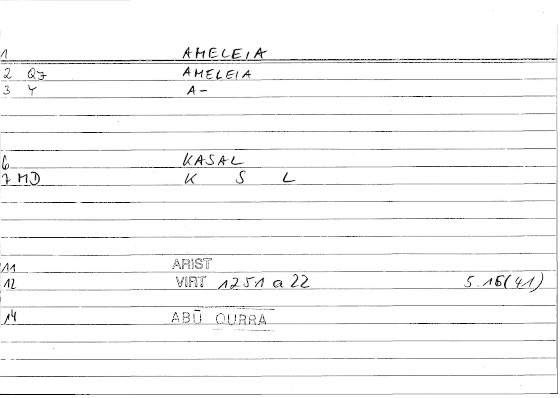 1 AMELEIA
2 QZ AMELEIA
3 Y A-
6 KASAL
7 MD K S L
11 ARIST
12 VIRT 1251 a 22 5.16(41)
14 ABŪ QURRA